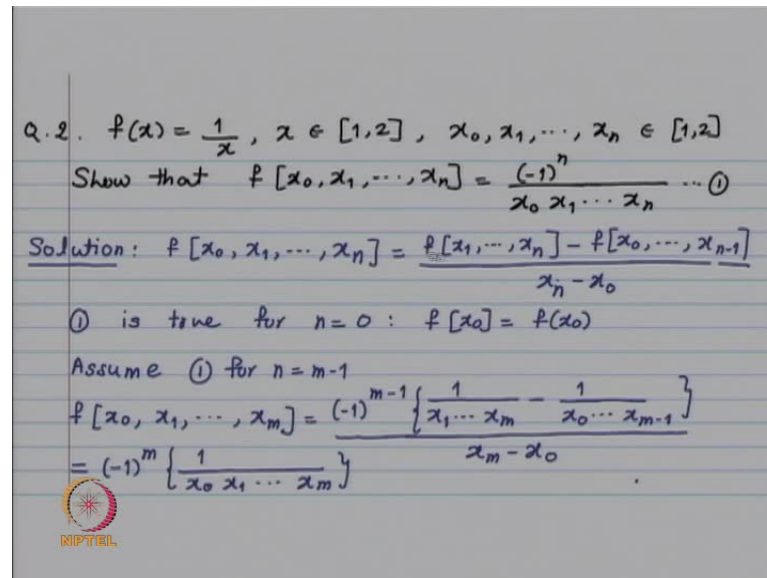 Q.2. f(x) = 1/x, x ∈ [1,2], x₀, x₁, ⋯, xₙ ∈ [1,2]
Show that f[x₀, x₁, ⋯, xₙ] = (-1)ⁿ / (x₀ x₁ ⋯ xₙ) ⋯ ①
Solution: f[x₀, x₁, ⋯, xₙ] = (f[x₁, ⋯, xₙ] - f[x₀, ⋯, xₙ₋₁]) / (xₙ - x₀)
① is true for n=0: f[x₀] = f(x₀)
Assume ① for n = m-1
f[x₀, x₁, ⋯, xₘ] = (-1)ᵐ⁻¹ {1/(x₁ ⋯ xₘ) - 1/(x₀ ⋯ xₘ₋₁)} / (xₘ - x₀)
= (-1)ᵐ {1/(x₀ x₁ ⋯ xₘ)}
NPTEL